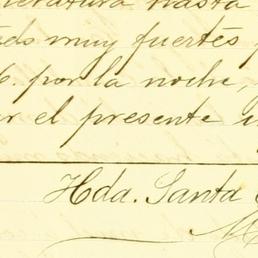 hasta
muy fuertes
6. por la noche,
el presente
Hda. Santa